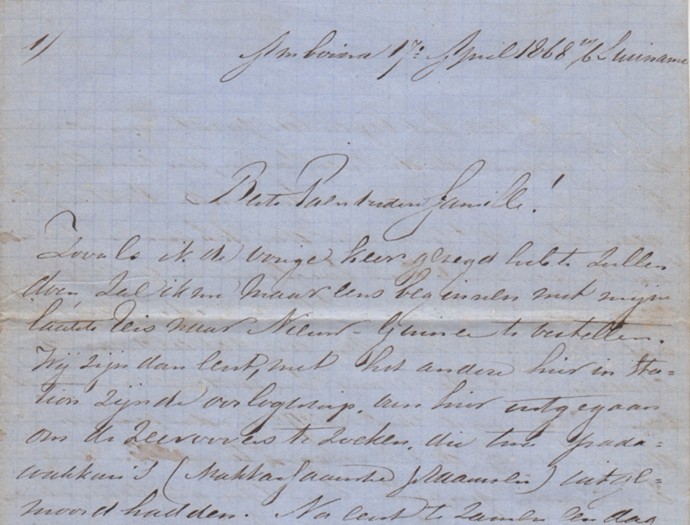 1) Amboina 17: April 1868 Suriname
Beste familie!
Zooals ik de vorige keer gezegd heb te zullen
doen, zal ik nu maar eens beginnen met mijn
laatste reis naar Nieuw-Guinea te vertellen.
Wij zijn dan eerst, met het andere hier in sta=
tion zijnde oorlogschip, van hier uitgegaan
om de Zeeroovers te zoeken, die twee pada=
wakkan's (Makkassaarsche) uitge=
moord hadden. Na eerst te zamen een dag